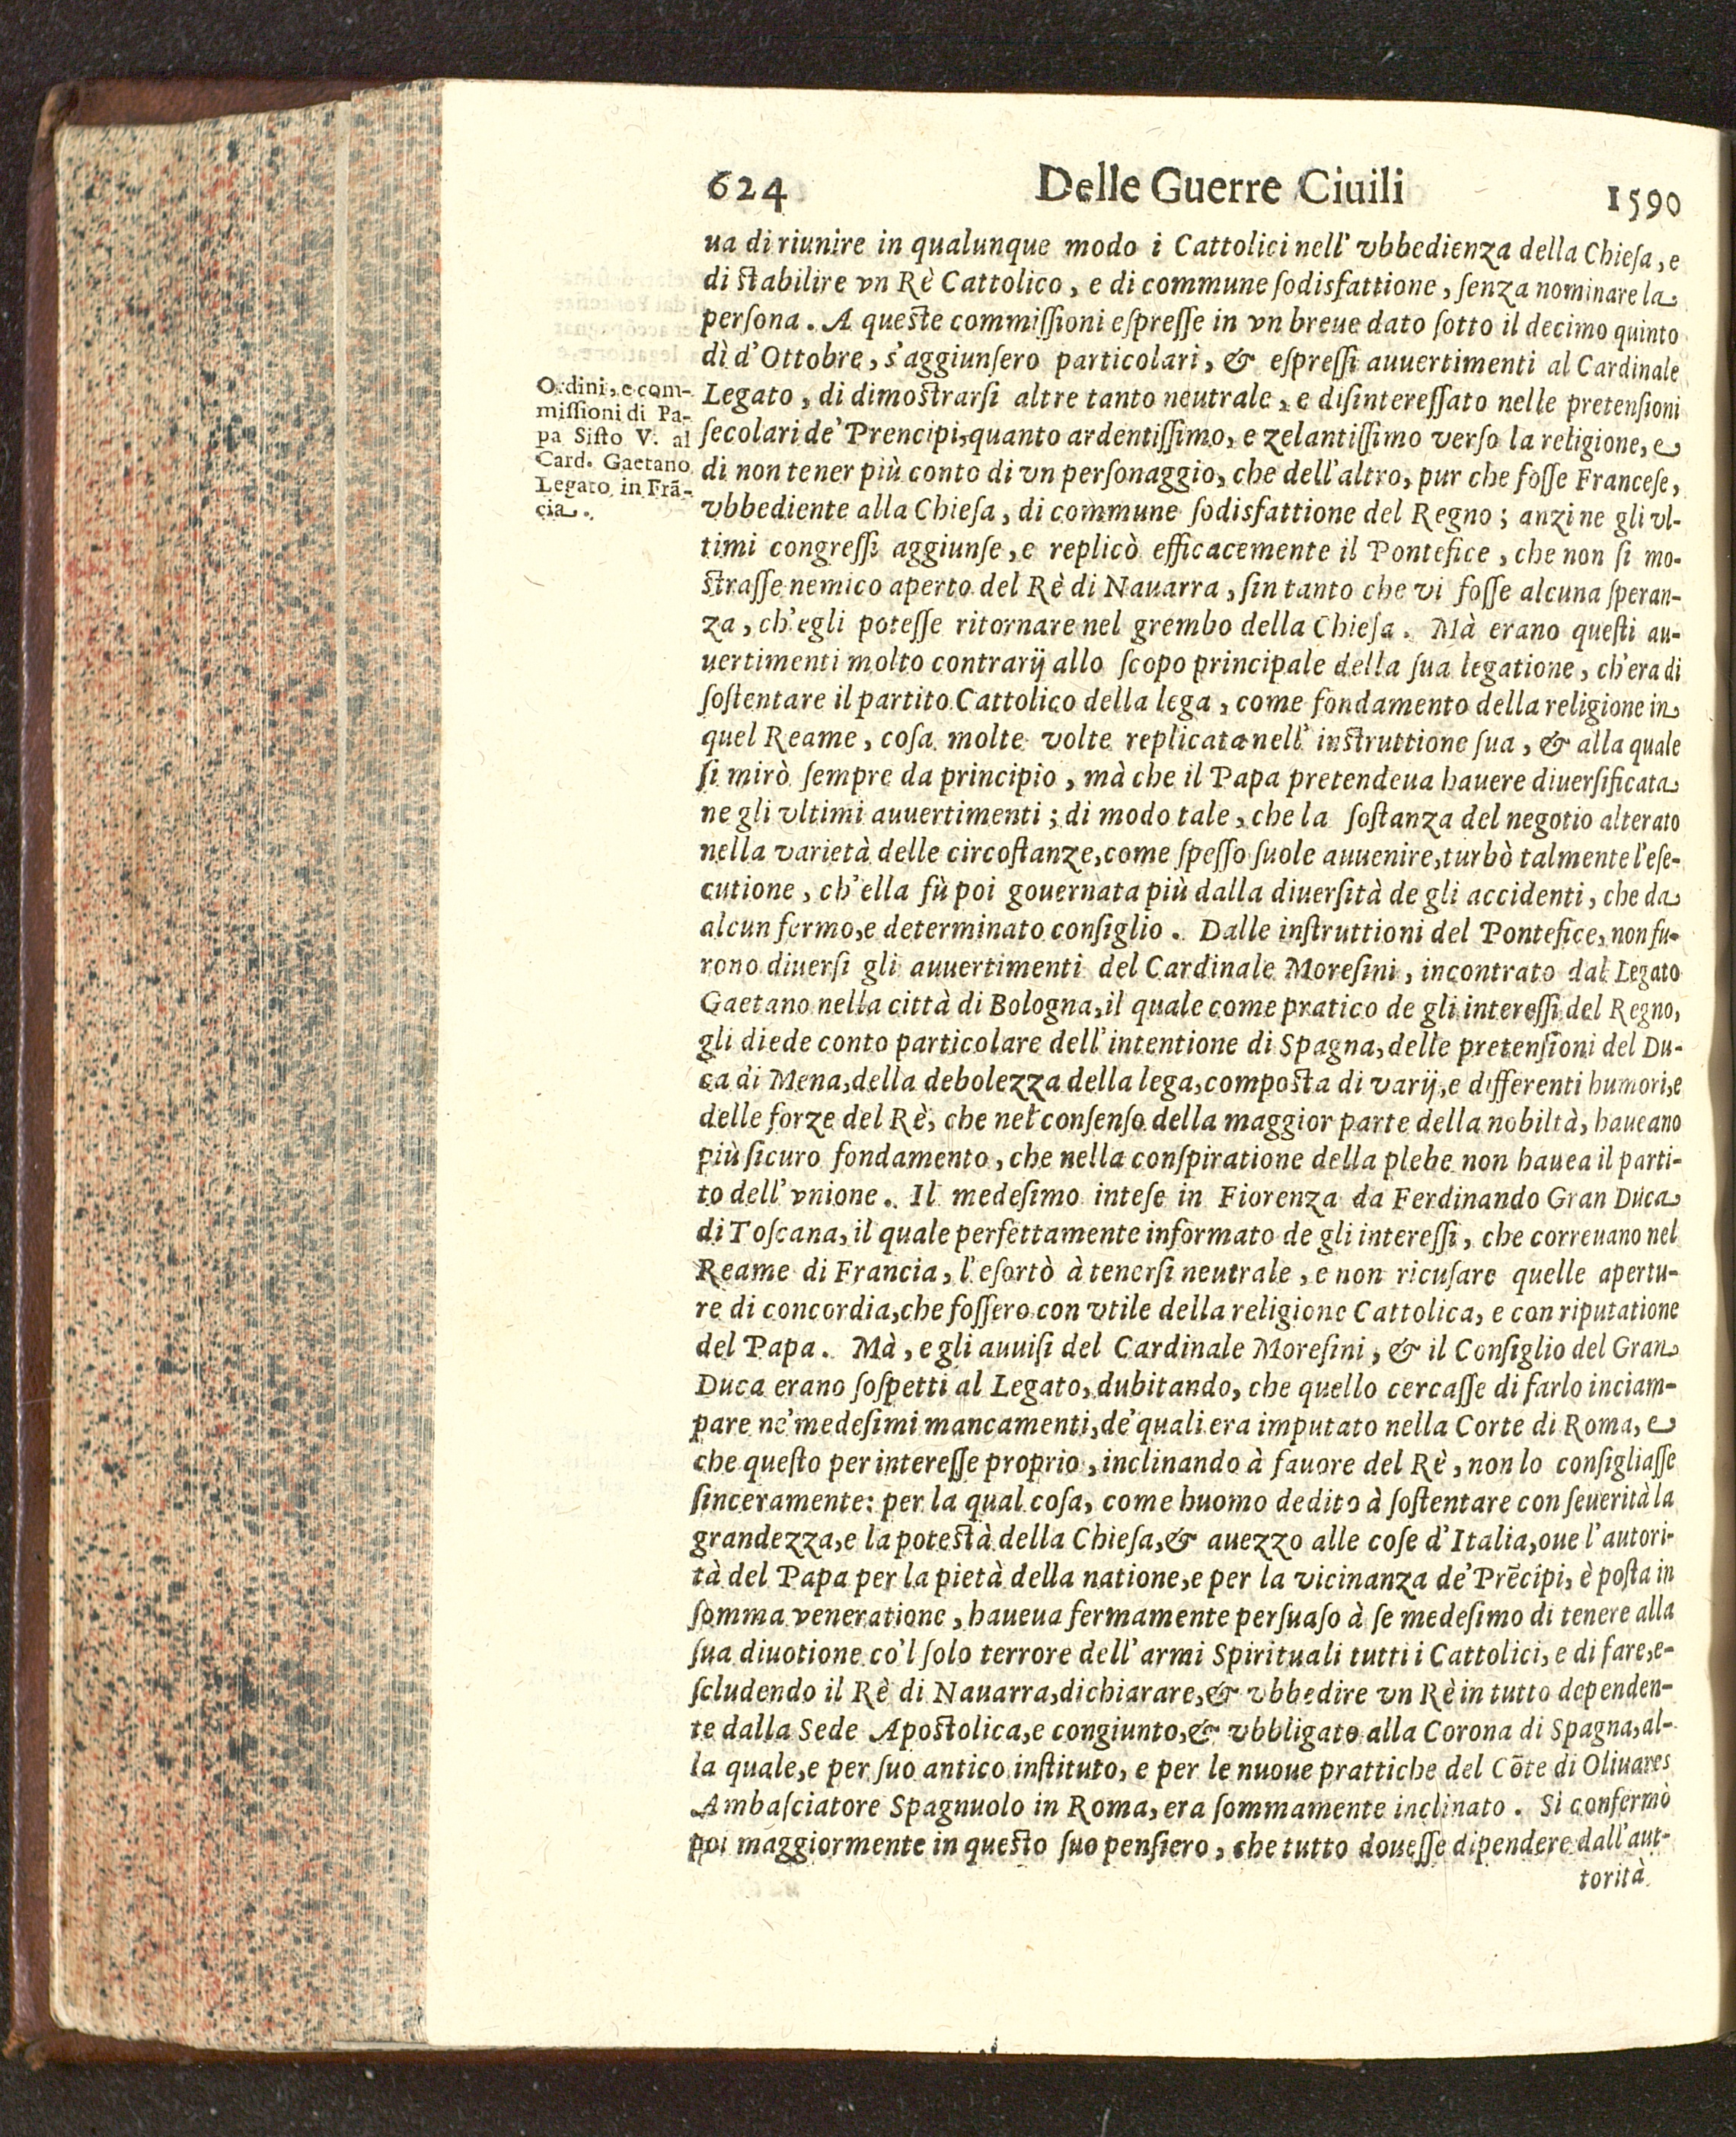 624 Delle Guerre Ciuili 1590
ua di riunire in qualunque modo i Cattolici nell' vbbedienza della Chieſa, e
di ſtabilire vn Rè Cattolico, e di commune ſodisfattione, ſenza nominare la
perſona. A queſte commiſſioni eſpreſſe in vn breue dato ſotto il decimo quinto
dì d'Ottobre, s'aggiunſero particolari, & eſpreſſi auuertimenti al Cardinale
Legato, di dimoſtrarſi altre tanto neutrale, e diſintereſſato nelle pretenſioni
ſecolari de' Prencipi, quanto ardentiſſimo, e zelantiſſimo verſo la religione, e
di non tener più conto di vn perſonaggio, che dell'altro, pur che foſſe Franceſe,
vbbediente alla Chieſa, di commune ſodisfattione del Regno; anzi ne gli vl-
timi congreſſi aggiunſe, e replicò efficacemente il Pontefice, che non ſi mo-
ſtraſſe nemico aperto del Rè di Nauarra, ſin tanto che vi foſſe alcuna ſperan-
za, ch'egli poteſſe ritornare nel grembo della Chieſa. Mà erano queſti au-
uertimenti molto contrarij allo ſcopo principale della ſua legatione, ch'era di
ſoſtentare il partito Cattolico della lega, come fondamento della religione in
quel Reame, coſa molte volte replicata nell' inſtruttione ſua, & alla quale
ſi mirò ſempre da principio, mà che il Papa pretendeua hauere diuerſificata
ne gli vltimi auuertimenti; di modo tale, che la ſoſtanza del negotio alterato
nella varietà delle circoſtanze, come ſpeſſo ſuole auuenire, turbò talmente l'eſe-
cutione, ch'ella fù poi gouernata più dalla diuerſità de gli accidenti, che da
alcun fermo, e determinato conſiglio. Dalle inſtruttioni del Pontefice, non fu-
rono diuerſi gli auuertimenti del Cardinale Moreſini, incontrato dal Legato
Gaetano nella città di Bologna, il quale come pratico de gli intereſſi del Regno,
gli diede conto particolare dell' intentione di Spagna, delle pretenſioni del Du-
ca di Mena, della debolezza della lega, compoſta di varij, e differenti humori, e
delle forze del Rè, che nel conſenſo della maggior parte della nobiltà, haueano
più ſicuro fondamento, che nella conſpiratione della plebe non hauea il parti-
to dell' vnione. Il medeſimo inteſe in Fiorenza da Ferdinando Gran Duca
di Toſcana, il quale perfettamente informato de gli intereſſi, che correuano nel
Reame di Francia, l'eſortò à tenerſi neutrale, e non ricuſare quelle apertu-
re di concordia, che foſſero con vtile della religione Cattolica, e con riputatione
del Papa. Mà, e gli auuiſi del Cardinale Moreſini, & il Conſiglio del Gran
Duca erano ſoſpetti al Legato, dubitando, che quello cercaſſe di farlo inciam-
pare ne' medeſimi mancamenti, de' quali era imputato nella Corte di Roma, e
che queſto per intereſſe proprio, inclinando à fauore del Rè, non lo conſigliaſſe
ſinceramente: per la qual coſa, come huomo dedito à ſoſtentare con ſeuerità la
grandezza, e la poteſtà della Chieſa, & auezzo alle coſe d'Italia, oue l'autori-
tà del Papa per la pietà della natione, e per la vicinanza de' Prẽcipi, è poſta in
ſomma veneratione, haueua fermamente perſuaſo à ſe medeſimo di tenere alla
ſua diuotione co'l ſolo terrore dell' armi Spirituali tutti i Cattolici, e di fare, e-
ſcludendo il Rè di Nauarra, dichiarare, & vbbedire vn Rè in tutto dependen-
te dalla Sede Apoſtolica, e congiunto, & vbbligato alla Corona di Spagna, al-
la quale, e per ſuo antico inſtituto, e per le nuoue prattiche del Cõte di Oliuares
Ambaſciatore Spagnuolo in Roma, era ſommamente inclinato. Si confermò
poi maggiormente in queſto ſuo penſiero, che tutto doueſſe dipendere dall'aut-
torità
Ordini, e com-
miſſioni di Pa-
pa Siſto V. al
Card. Gaetano
Legato in Frã-
cia.